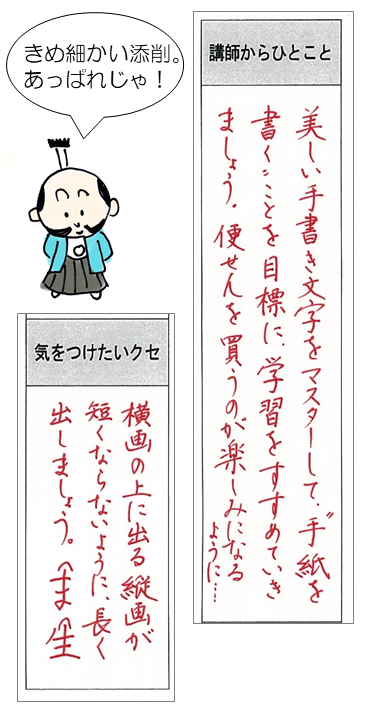 きめ細かい添削。
あっぱれじゃ！
講師からひとこと
美しい手書き文字をマスターして、〝手紙を
書く〟ことを目標に、学習をすすめていき
ましょう。便せんを買うのが楽しみになる
ように…
気をつけたいクセ
横画の上に出る縦画が
短くならないように、長く
出しましょう。ま 生